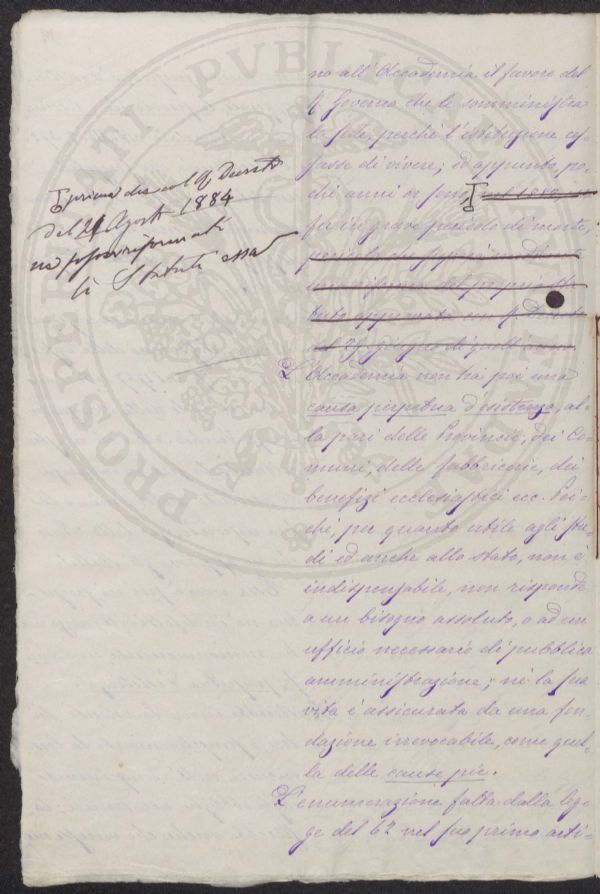 no all'Accademia il favore del
R.° Governo che le somministra
la sede, perché l'istituzione ces-
sasse di vivere; ed appunto, po-
chi anni or sono, nel
fu in grave pericolo di morte,
del proprio Sta-
tuto approvato con R. Decreto
del 29 Giugno di quell'anno
L'Accademia non ha poi una
causa perpetua d'esistenza, al-
la pari delle Provincie, dei Co-
muni, delle fabbricerie, dei
benefizi ecclesiastici ecc. Poi-
ché, per quanto utile agli stu-
di ed anche allo Stato, non è
indispensabile, non risponde
a un bisogno assoluto, o ad un
ufficio necessario di pubblica
amministrazione; né la sua
vita è assicurata da una fon-
dazione irrevocabile, come quel-
la delle cause pie.
L'enumerazione fatta dalla leg-
ge del 62 nel suo primo arti-
prima che col R. Decreto
del 21 Agosto 1884
ne fossero riformati
li Statuti
PROSPERITATI PVBLICAE